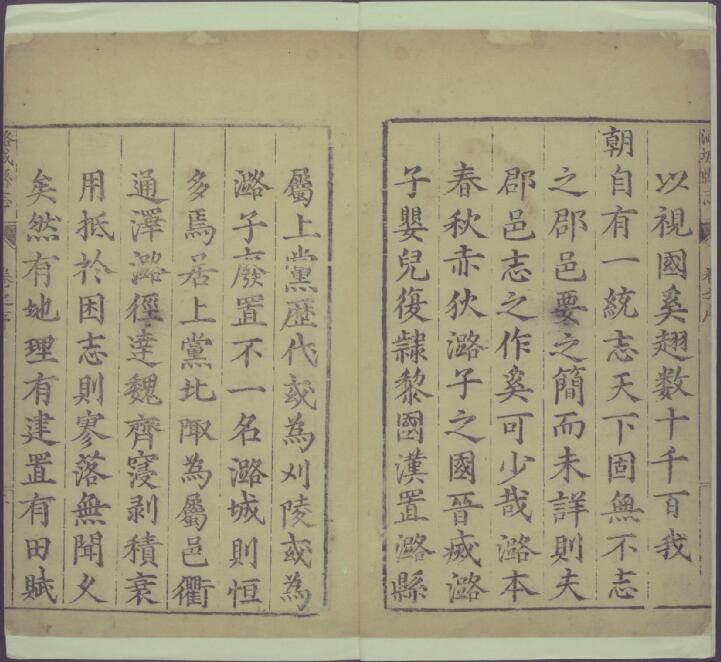 以視國奚趐数十千百我
朝自有一統志天下固無不志
之郡邑要之簡而未詳則夫
郡邑志之作奚可少哉潞本
春秋赤狄潞子之國晉滅潞
子嬰兒復隷黎國漢置潞縣
屬上黨歷代或為刈陵或為
潞子廢置不一名潞城則恒
多焉居上黨北陬為屬邑衢
通澤潞徑達魏齊寖剥積衰
用抵於困志則寥落無聞久
矣然有地理有建置有田賦
潞城縣志
卷之序